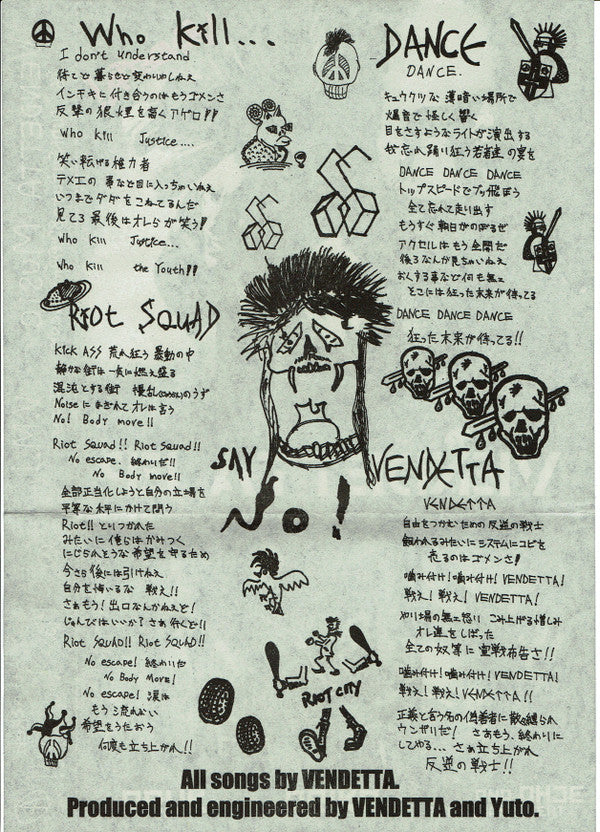 Who Kill...
I don't understand
待てど暮らせど変わりゃしねえ
インチキに付き合うのはもうゴメンさ
反撃の狼煙を高くアゲロ!!
Who Kill Justice....
笑い転げる権力者
テメエの事など目に入っちゃいねえ
いつまでダダをこねてるんだ
見てろ最後はオレらが笑う!
Who Kill Justice...
Who Kill the Youth!!
RiOt SQUAD
KICK ASS 荒れ狂う暴動の中
静かな街は一気に燃え盛る
混沌とする街 のうず
Noiseにまぎれてオレは言う
No! Body move!!
Riot Squad!! Riot Squad!!
No escape. 終わりだ!!
No Body move!!
全部正当化しようと自分の立場を
平等な水平にかけて問う
Riot!! とりつかれた
みたいに俺らはかみつく
にじられそうな希望を守るため
今さら後には引けねえ
自分を悔いるな 戦え!!
さあもう!出口なんかねえど!
じゅんびはいいか? さあ行くど!!
Riot SQUAD!! Riot SQUAD!!
No escape! 終わりだ
No Body Move!
No escape! 涙は
もう流れない
希望をうたおう
何度も立ち上がれ!!
DANCE
DANCE.
キュウクツな薄暗い場所で
爆音で怪しく響く
目をさすようなライトが演出する
我忘れ踊り狂う若者達の宴を
DANCE DANCE DANCE
トップスピードでブッ飛ぼう
全て忘れて走り出す
もうすぐ朝日がのぼるぜ
アクセルはもう全開だ
後ろなんか見ちゃいねえ
おくする事など何も無え
そこには狂った未来が待ってる
DANCE DANCE DANCE
狂った未来が待ってる!!
SAY
No!
VENDETTA
VENDETTA
自由をつかむための反逆の戦士
飼われるみたいにシステムにコビを
売るのはゴメンさ!
噛み付け!噛み付け! VENDETTA!
戦え! 戦え! VENDETTA!
やり場の無え怒い こみ上げる憎しみ
オレ達をしばった
全ての奴等に宣戦布告さ!!
噛み付け!噛み付け! VENDETTA!
戦え! 戦え! VENDETTA!!
正義と言う名の偽善者に散々縛られ
ウンザリだ! さあもう、終わりに
してやる... さぁ立ち上がれ
反逆の戦士!!
RIOT CITY
All songs by VENDETTA.
Produced and engineered by VENDETTA and Yuto.